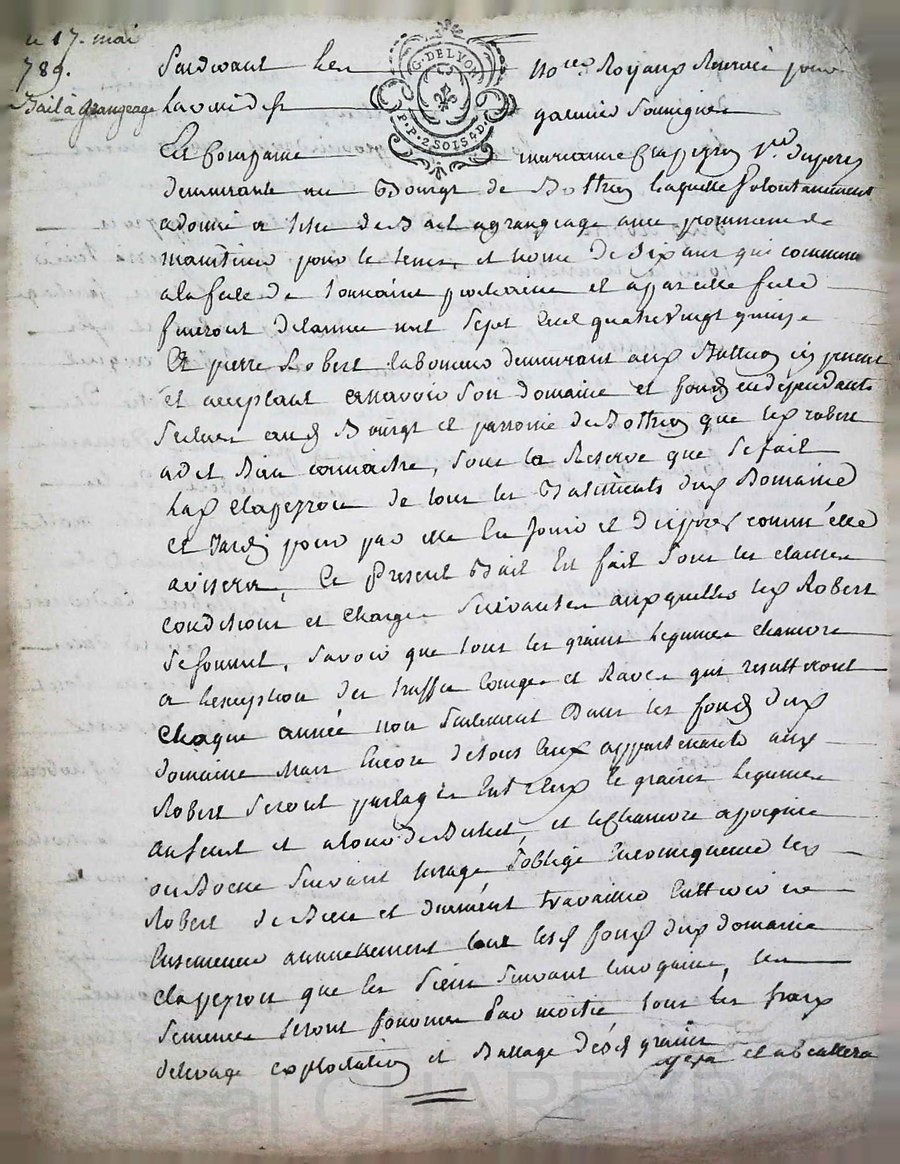 17. mai
789.
Bail à grangeage
Pardevant Les
No.res Royaux Reservé pour
G. DE LYON
P. P. 2 SOLS 4 D.
La
garnier Soussigne
Est Comparue marianne Clapeyron
demeurante au Bourgt de Bothéon laquelle volontairement
a donné a titre de Bail a grangeage avec promesse de
maintenir pour le tems et terme de Six ans qui commen
a la feste de toussaint prochaine et a pareille feste
finiront de lannee mil Sept Cent quatrevingt quinze
A pierre Robert laboureur demeurant aux present
et acceptant assavoir Son domaine et fonds en dependants
Scitués aud. Bourgt et parroisse de Bothéon que led. robert
a dit Bien connaitre, Sous la Reserve que Se fait
lad. Clapeyron de tous les Batiments dud. Domaine
et Jardin pour par elle En Jouir et disposer comme elle
avisera, Ce Present Bail Est fait Sous les clauses
conditions et charges Suivantes auxquelles led. Robert
Se soumet, Savoir que tous les grains legumes chanvre
a lexception des truffes Courges et Raves qui resulteront
chaque année non Seulement Dans les fonds dud.
domaine mais Encore de tous Ceux appartenants aud.
Robert Seront partagés Entr'Eux les grains legumes
et chanvre a poignée
Suivant lusage Soblige En consequence led.
Robert de Bien et duement travailler Cultiver
Ensemencer annuellement tous lesd. fonds dud. domaine
Clapeyron que les Siens Suivant les
Semences Seront fournies Par moitié tous les fraix
de levage exploitation et Battage desd. grains
et
Pascal CHAREYRON